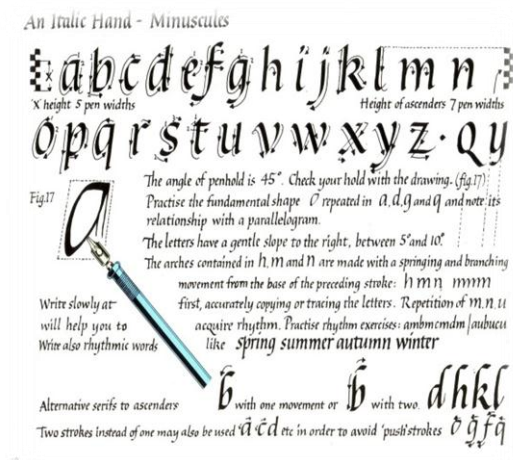 An Italic Hand - Minuscules
a b c d e f g h i j k l m n
'X' height 5 pen widths
Height of ascenders 7 pen widths
o p q r s t u v w x y z · q y
Fig.17
The angle of penhold is 45°. Check your hold with the drawing. (fig.17)
Practise the fundamental shape o repeated in a,d,g and q and note its
relationship with a parallelogram.
The letters have a gentle slope to the right, between 5° and 10°
The arches contained in h, m and n are made with a springing and branching
movement from the base of the preceding stroke: h m n mmm
Write slowly at first, accurately copying or tracing the letters. Repetition of m,n,u
will help you to acquire rhythm. Practise rhythm exercises: ambmcmdm / aubucu
Write also rhythmic words like spring summer autumn winter
Alternative serifs to ascenders b with one movement or b with two. d h k l
Two strokes instead of one may also be used a c d etc in order to avoid 'push' strokes o g f q